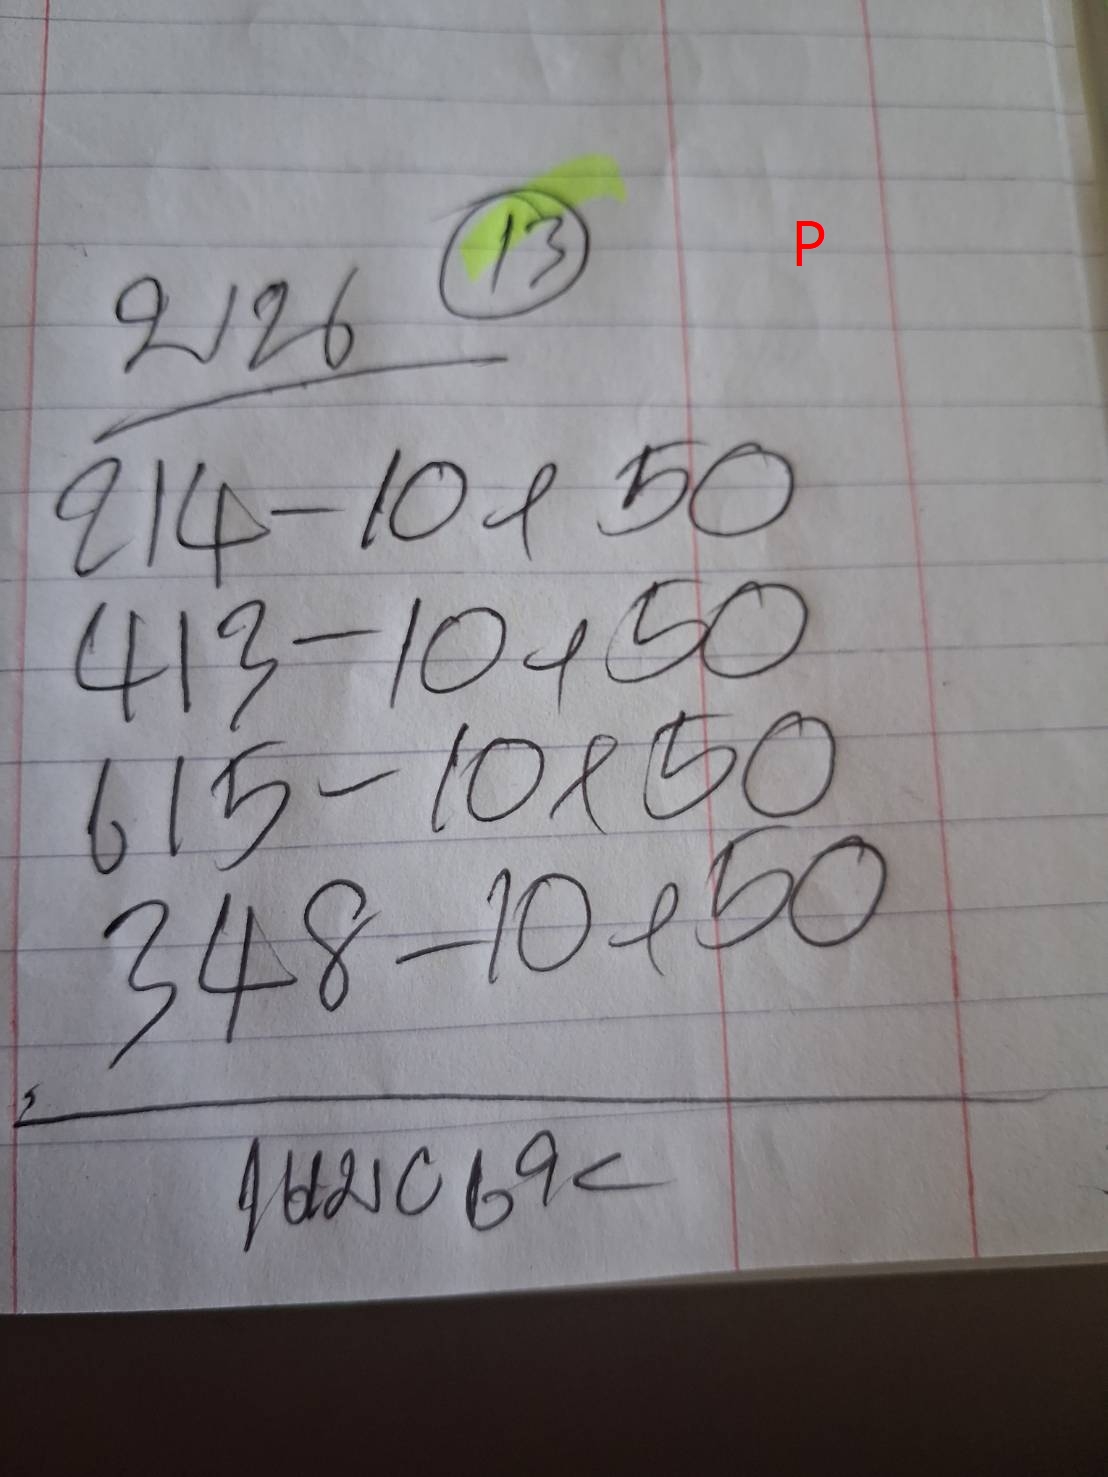 13
P
2126
214-10x50
413-10x50
615-10x50
348-10x50